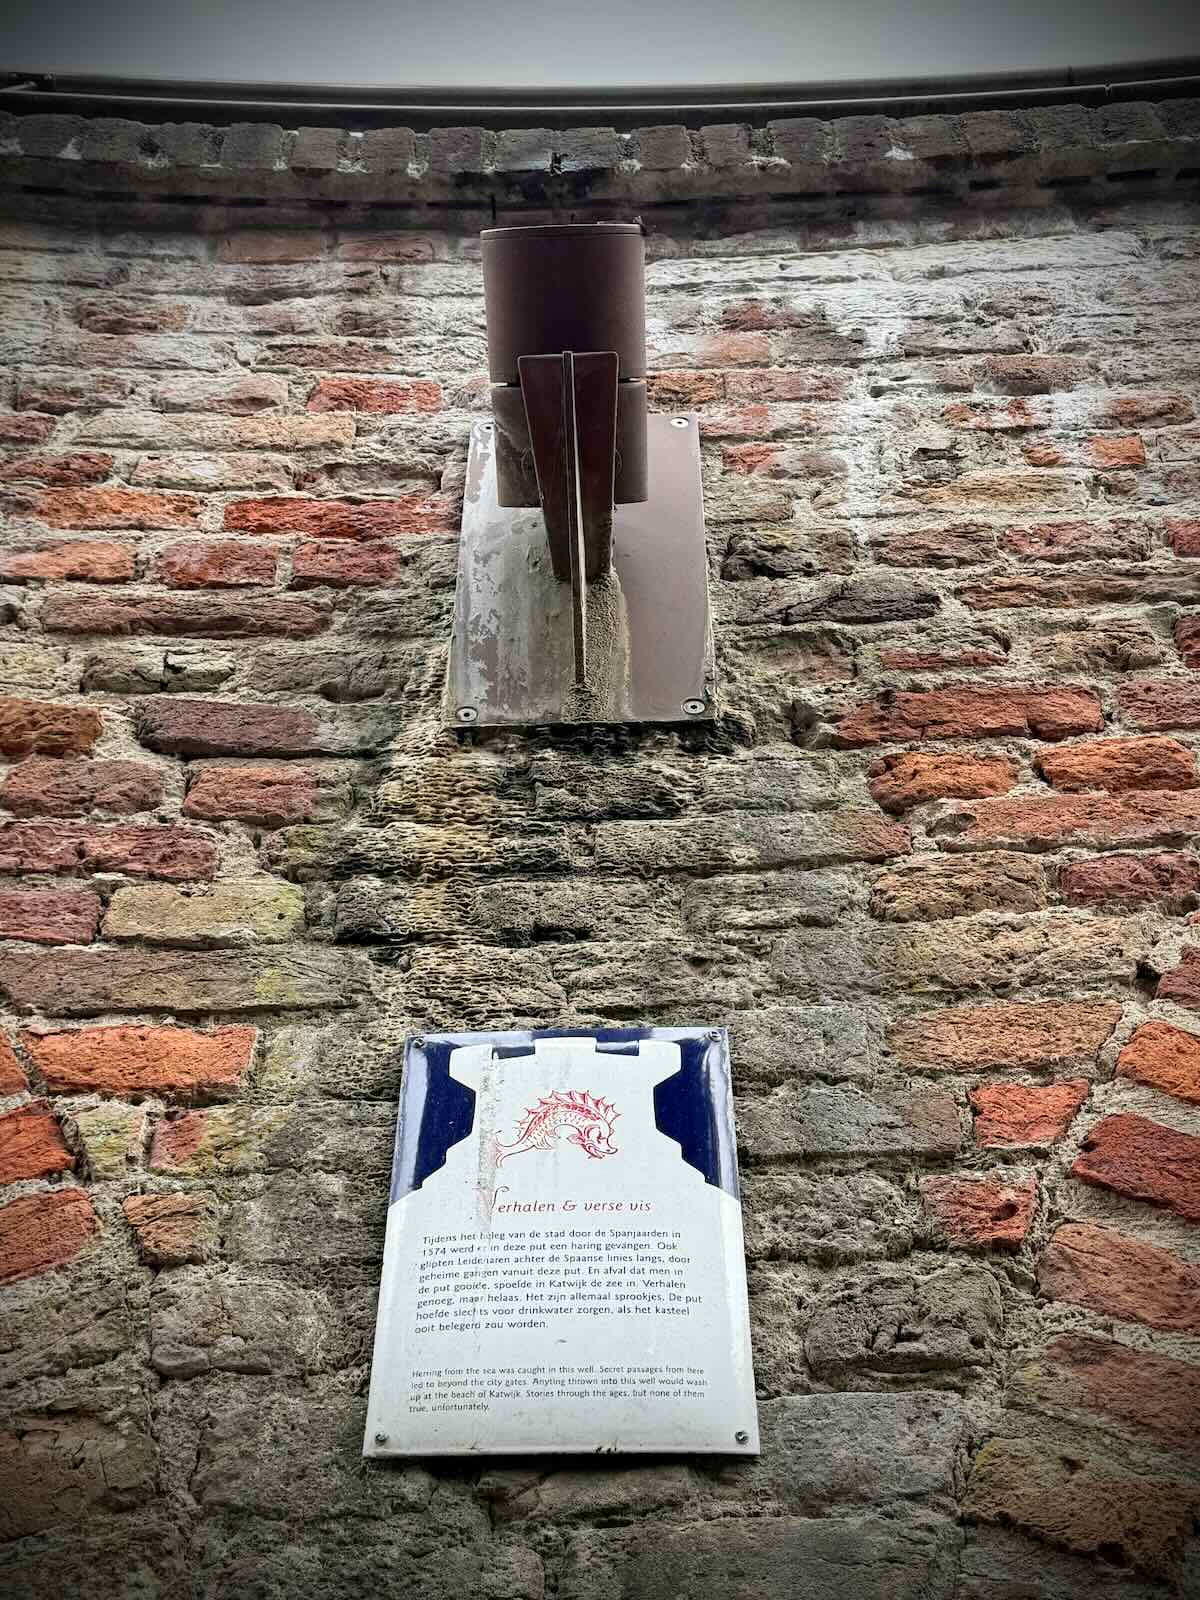 Verhalen & verse vis
Tijdens het beleg van de stad door de Spanjaarden in
1574 werd er in deze put een haring gevangen. Ook
glipten Leidenaren achter de Spaanse linies langs, door
geheime gangen vanuit deze put. En afval dat men in
de put gooide, spoelde in Katwijk de zee in. Verhalen
genoeg, maar helaas. Het zijn allemaal sprookjes. De put
hoefde slechts voor drinkwater zorgen, als het kasteel
ooit belegerd zou worden.
Herring from the sea was caught in this well. Secret passages from here
led to beyond the city gates. Anyting thrown into this well would wash
up at the beach of Katwijk. Stories through the ages, but none of them
true, unfortunately.